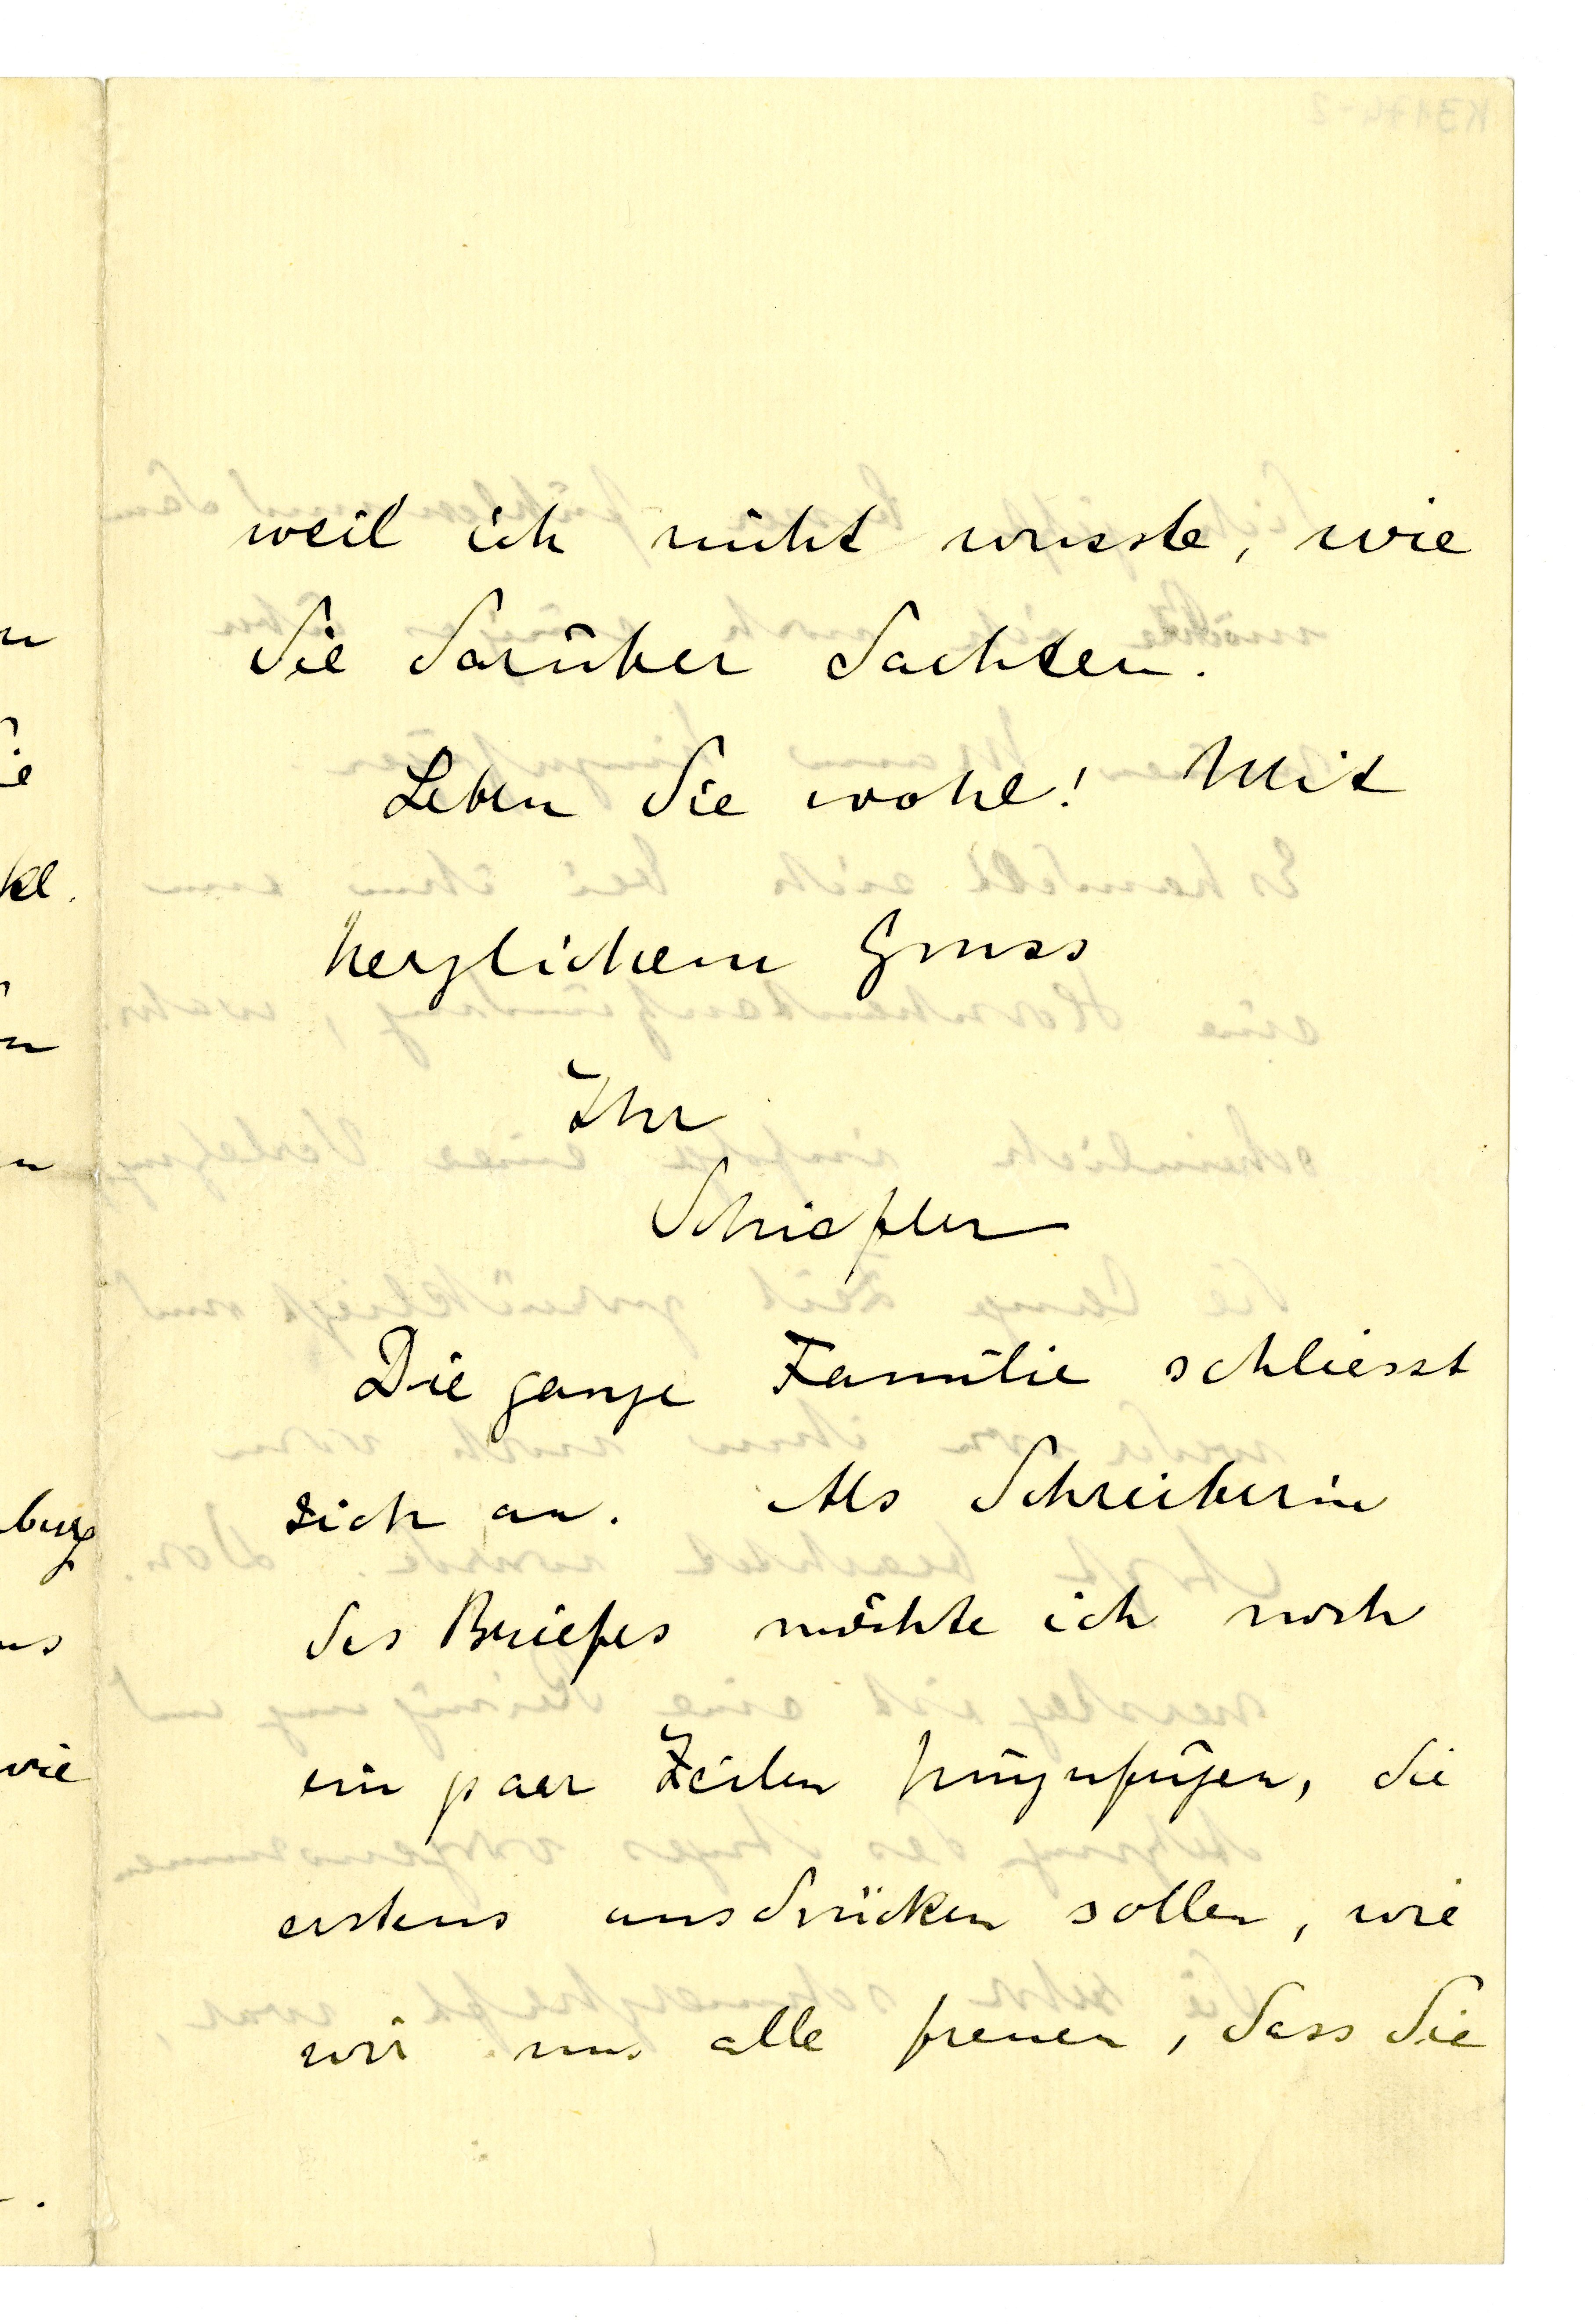 weil ich nicht wusste, wie
Sie darüber dachten.
Leben Sie wohl! Mit
herzlichem Gruss
Ihr
Schiefler
Die ganze Familie schliesst
sich an. Als Schreiberin
des Briefes möchte ich noch
ein paar Zeilen hinzufügen, die
erstens ausdrücken sollen, wie
wir uns alle freuen, dass Sie